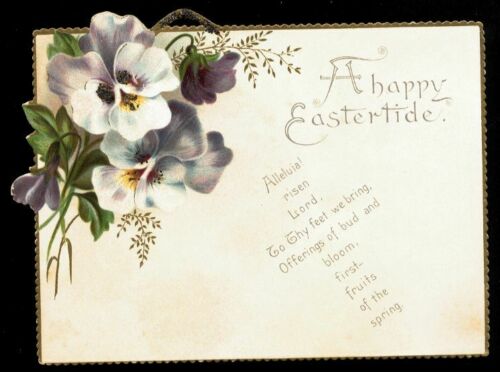 A happy
Eastertide.
Alleluia!
risen
Lord,
To Thy feet we bring,
Offerings of bud and
bloom,
first-
fruits
of the
spring.